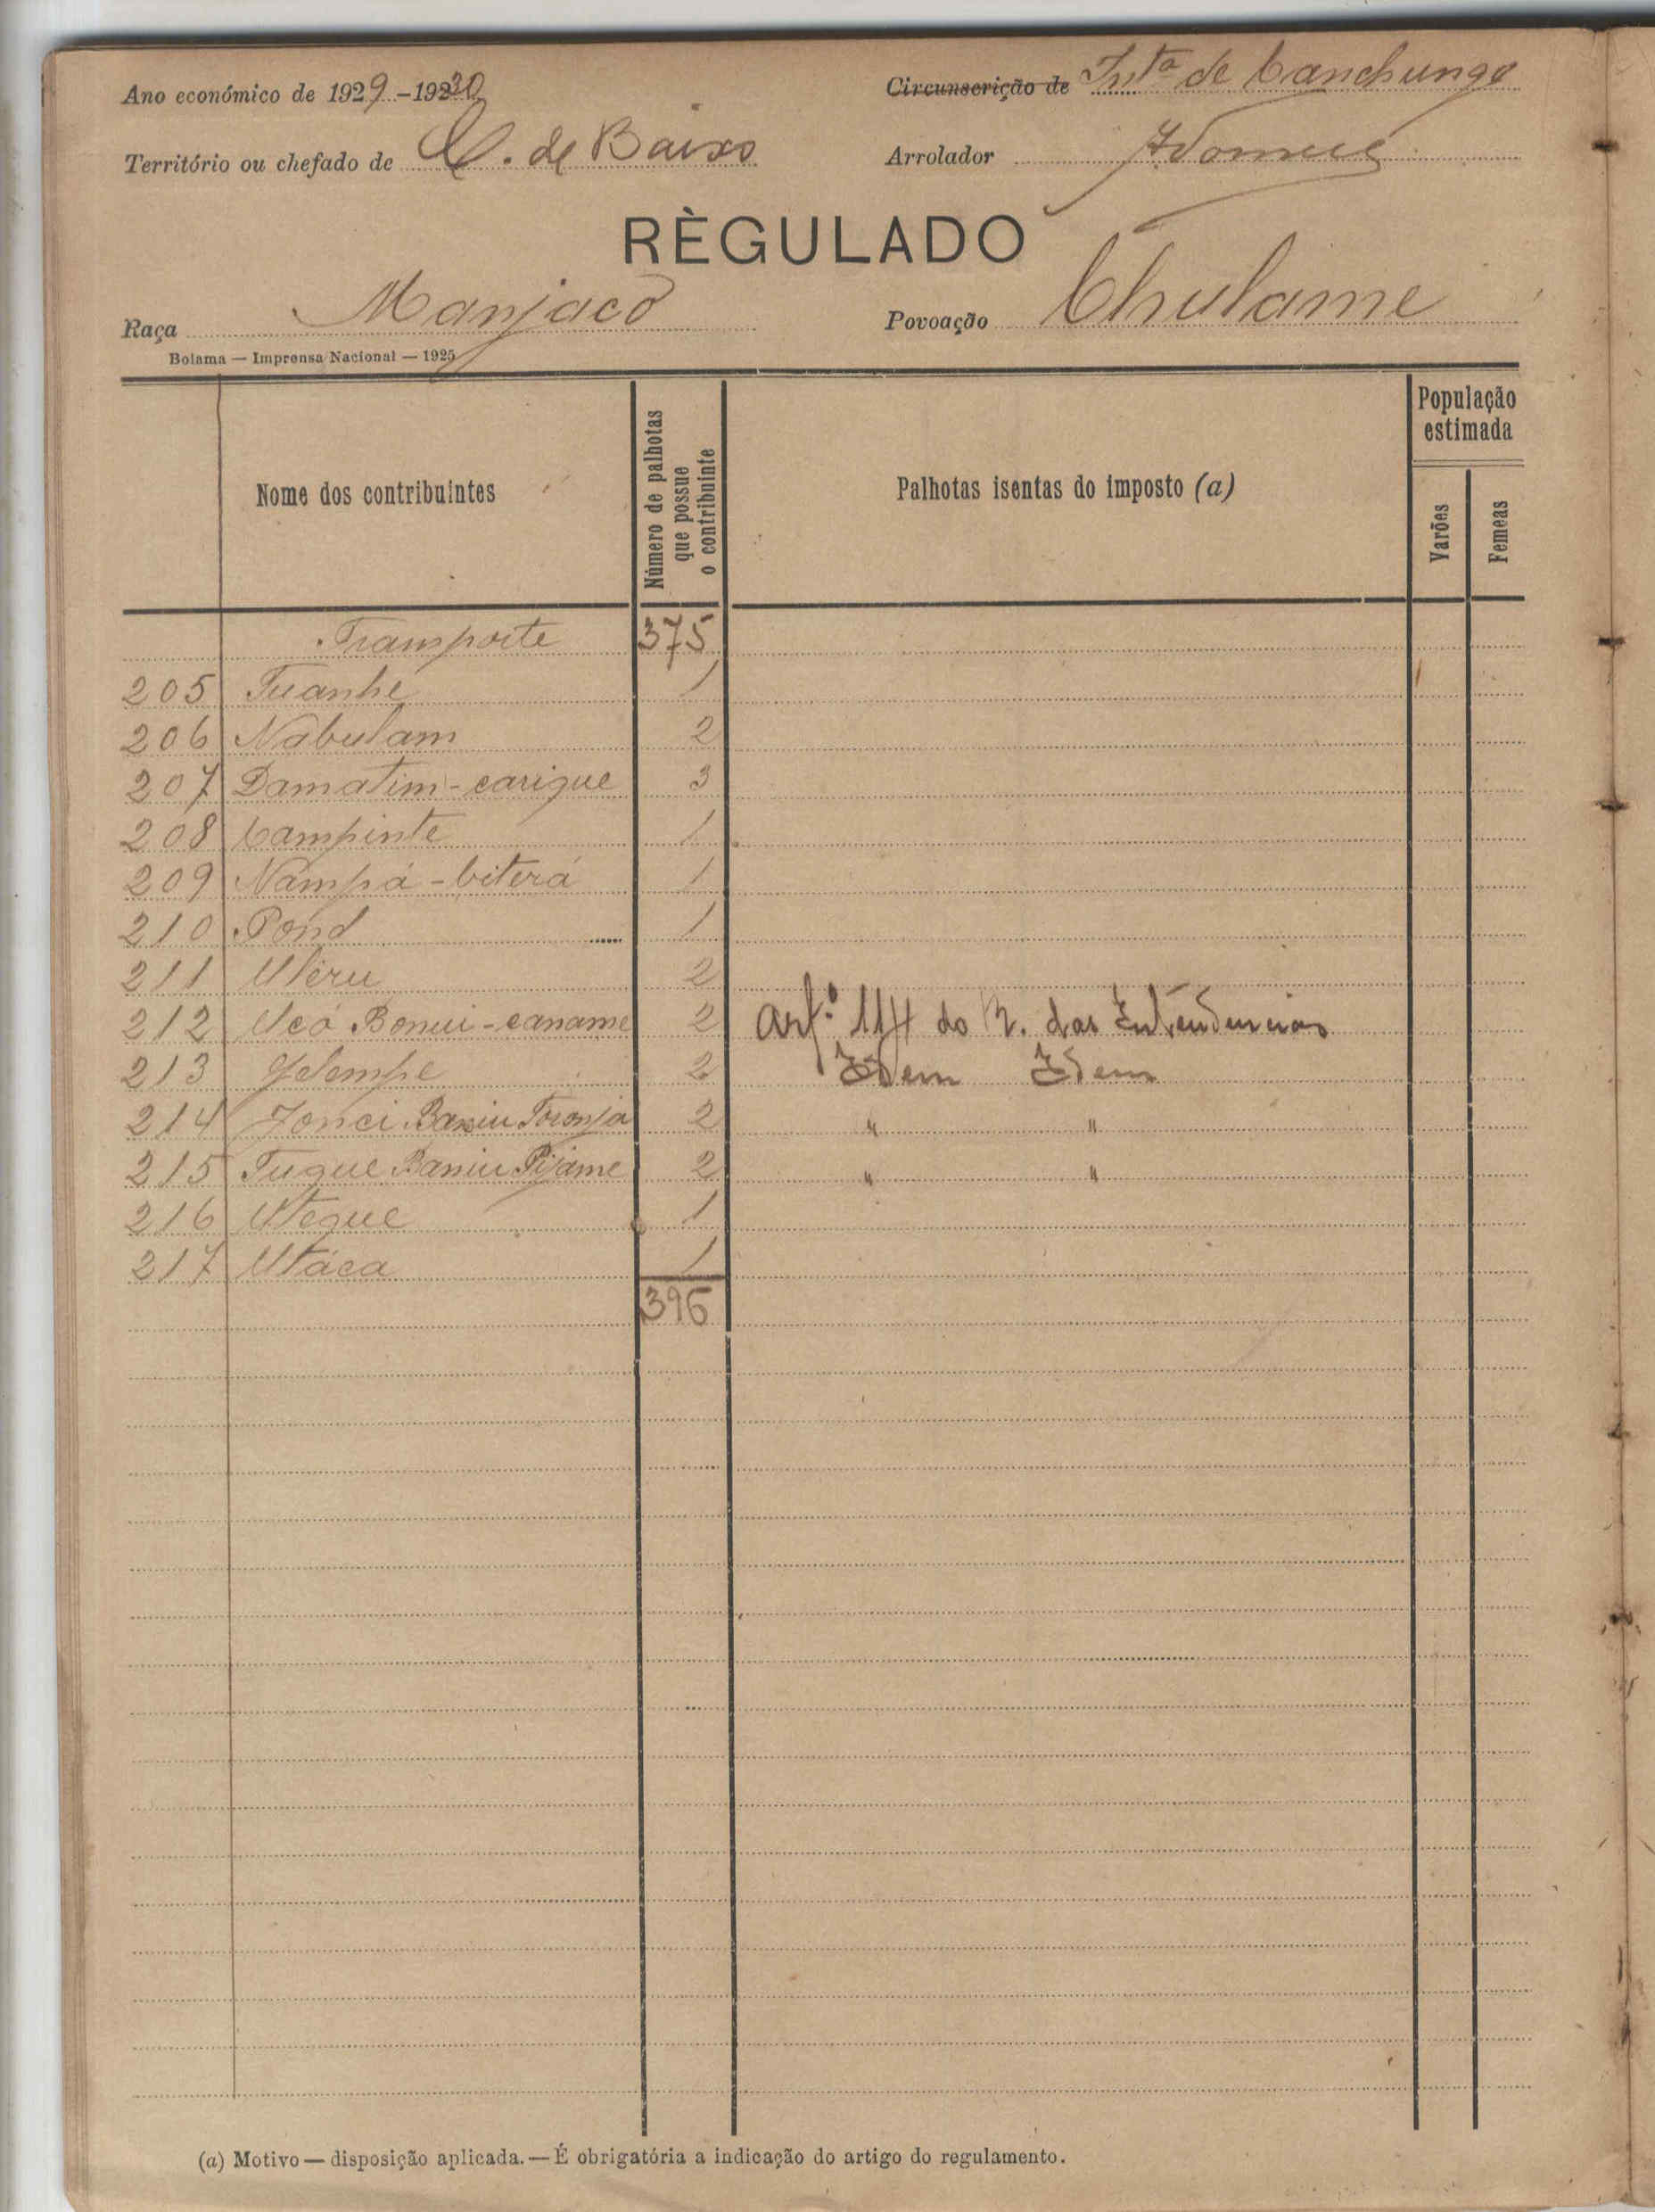 Ano económico de 1929-1930
Circunscrição de Intª de Canchungo
Território ou chefado de C. de Baixo
Arrolador
RÈGULADO
Raça Manjaco
Povoação Chulame
Bolama — Imprensa Nacional — 1925
Nome dos contribuintes
Número de palhotas que possue o contribuinte
Palhotas isentas do imposto (a)
População estimada
Varões
Femeas
Transporte 375
205 Tuanhe 1
206 Nabulam 2
207 Damatim-carique 3
208 Campinte 1
209 Nampá-biterá 1
210 Pond 1
211 Uleru 2
212 Ucó Bonui-caname 2 Artº 114 do R. das Intendencias
213 Gelempe 2 Idem Idem
214 Jonci Baniu Toronja 2 " "
215 Tugue Baniu Pijame 2 " "
216 Utegue 1
217 Utáca 1
396
(a) Motivo — disposição aplicada. — É obrigatória a indicação do artigo do regulamento.